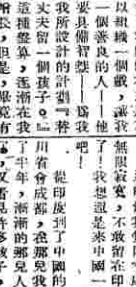 以組織一個戲，讓我
一個善良的人！他
要具備智慧——爲我
我所設計的計劃『幹
丈夫留一個孩子。』
這種思念，逐漸在我
增長，但是，畢竟有
無限寂寞，不敢留在印
了！我想還是來中國一
吧！
從印度到了中國的
川省會成都，在那兒我
了半年，漸漸的那兒人
又看見許多孩子，